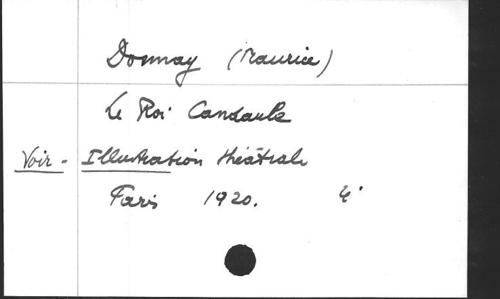 Donnay (Maurice)
Le Roi Candaule
Voir - Illustration théâtrale
Paris 1920. 4°